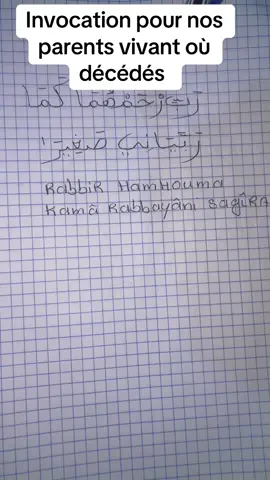 Invocation pour nos
parents vivant où
décédés
رَبِّ رْحَمْهُمَا كَمَا
رَبَّيَانِي صَغِيرَا
RabbiR HamHouma
Kamâ Rabbayâni SagîRA